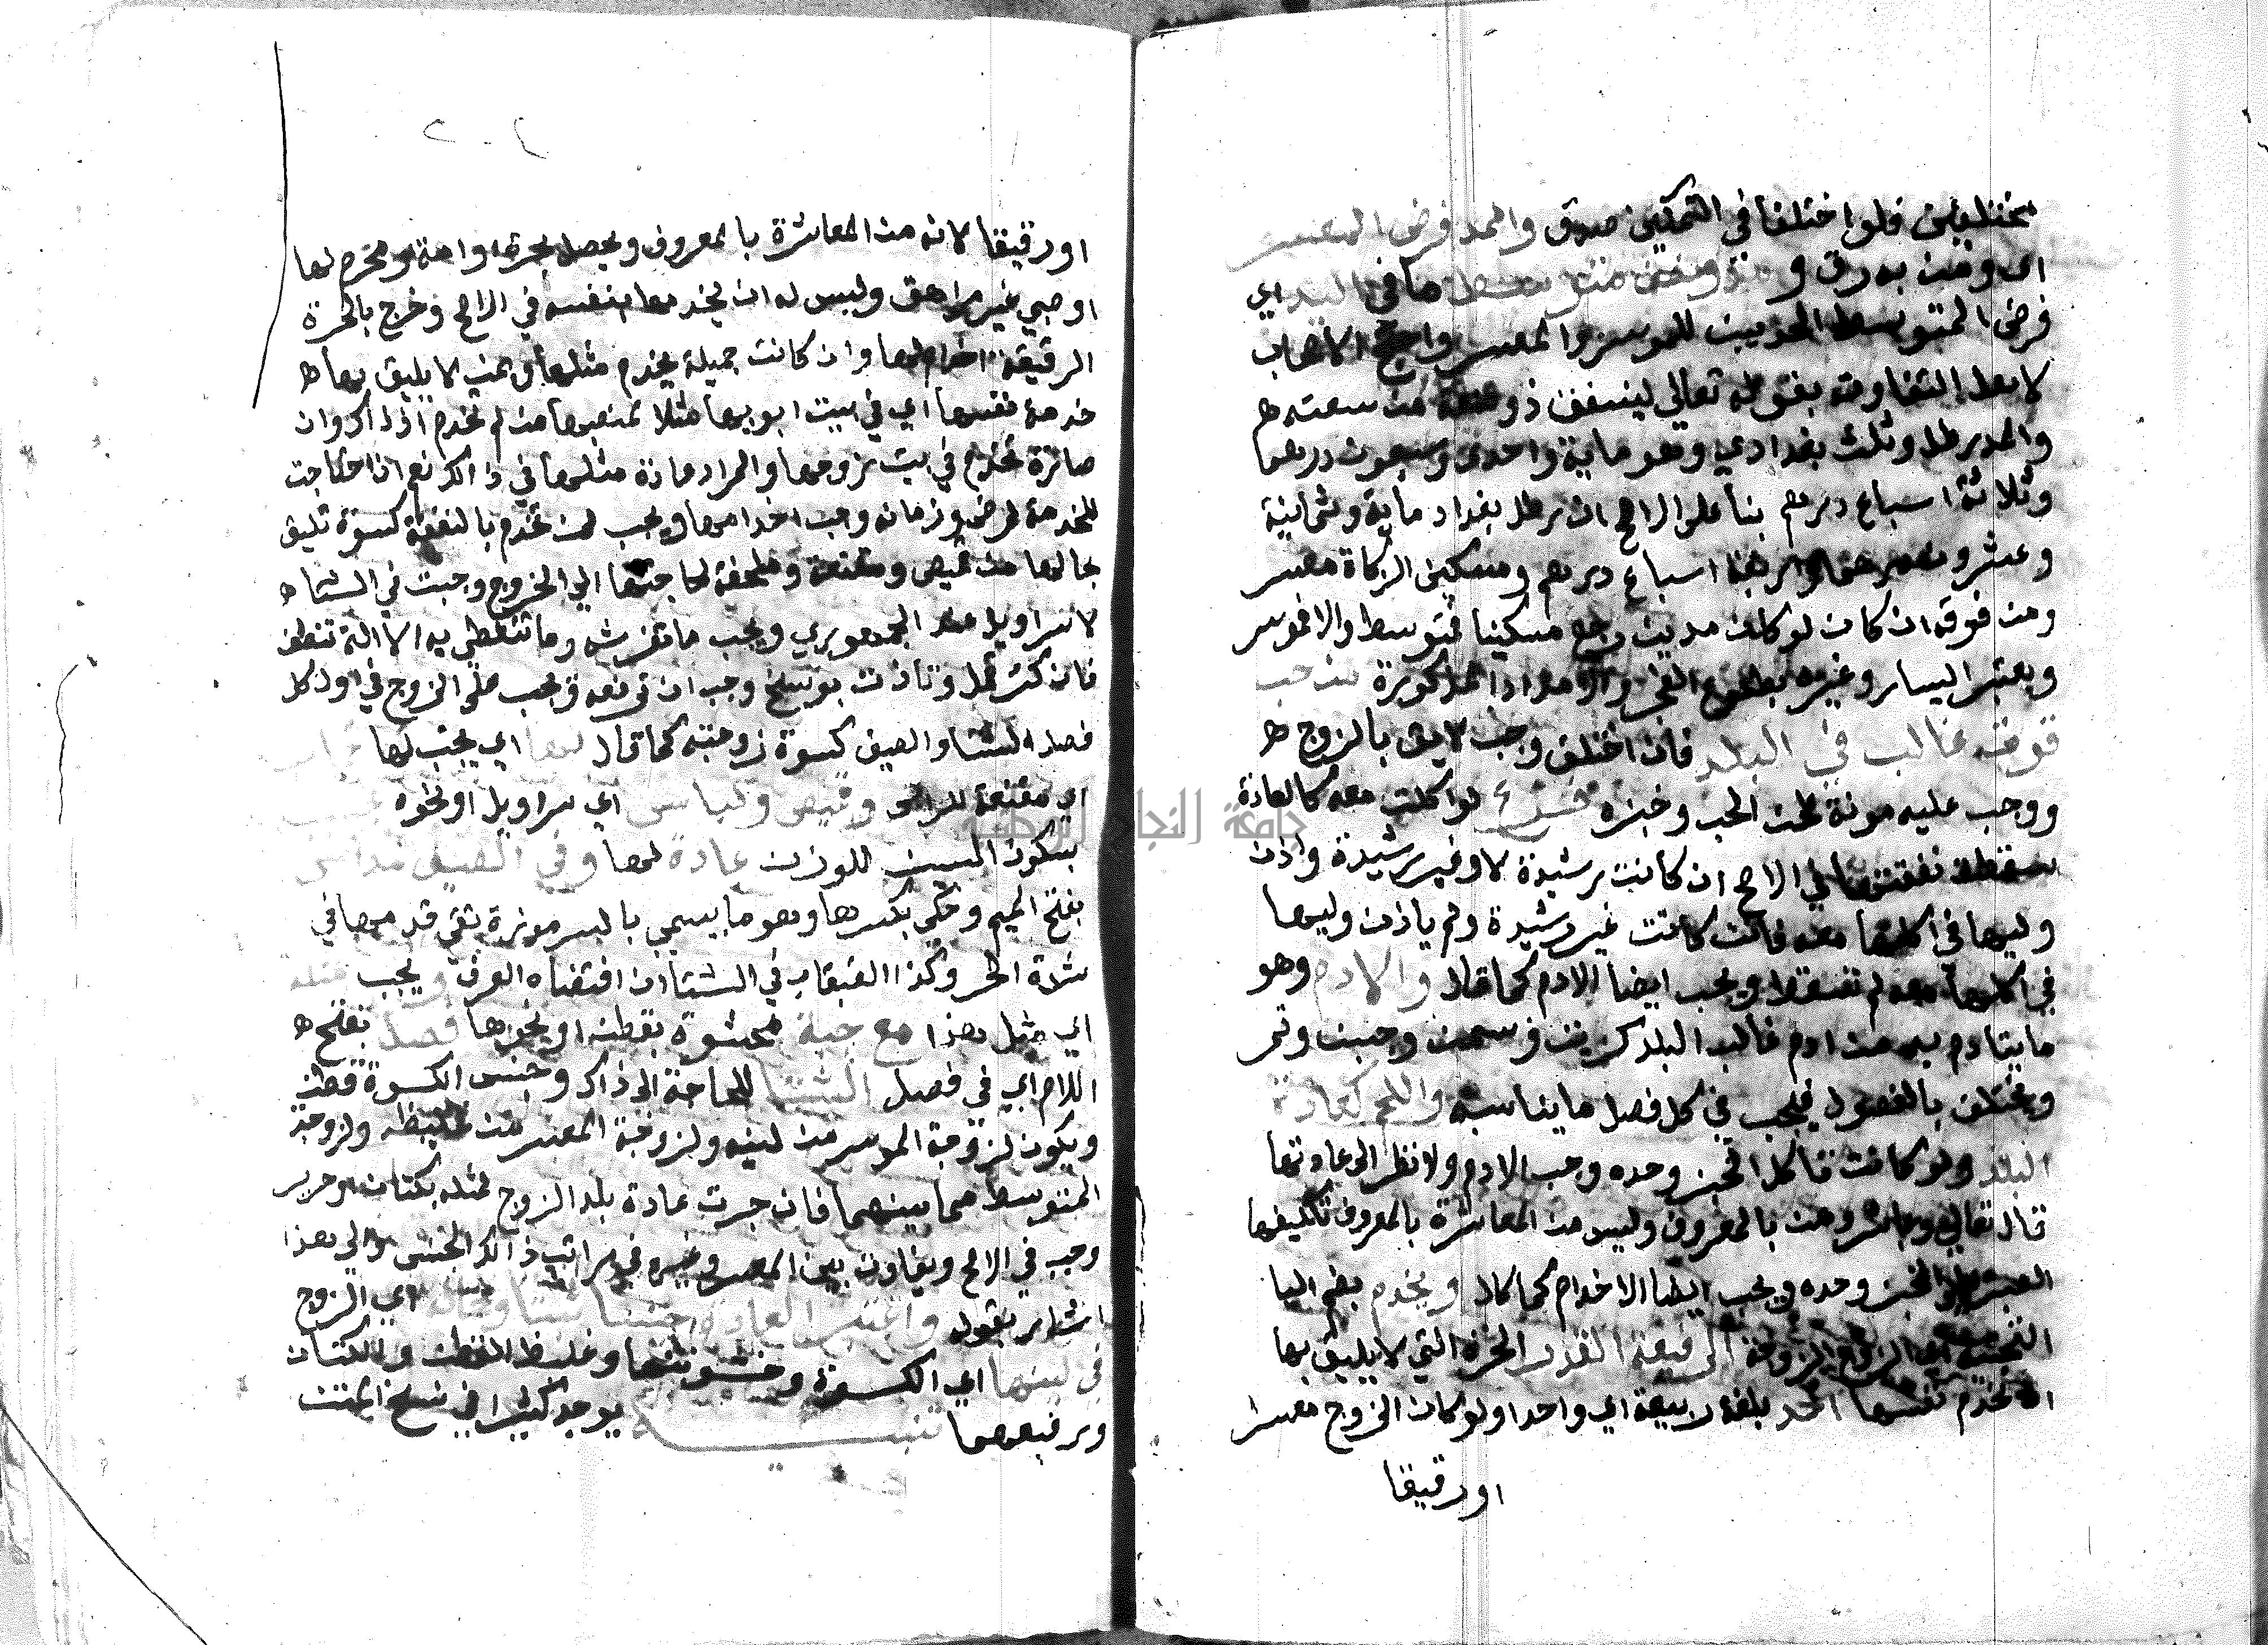 مختلفين فلو اختلفا في التمكين صدق والمد فرض المعسر
اي ومن به رق و
فرض المتوسط للموسر والمعسر واحتج الاصحاب
لاصل التفاوت بقوله تعالى لينفق ذو سعة من سعته
والمد رطل وثلث بغدادي وهو ماية واحدى وسبعون درهما
وثلاثة اسباع درهم بنا على الراجح ان رطل بغداد ماية وثمانية
وعشرون درهما واربعة اسباع درهم ومسكين الزكاة معسر
ومن فوقه ان كان لو كلف مدين رجع مسكينا فمتوسط والا فموسر
ويعتبر اليسار وغيره بطلوع الفجر والامداد المذكورة من حب
قوت غالب في البلد فان اختلف وجب لايق بالزوج
ووجب عليه مونة طحن الحب وخبزه فرع لو اكلت معه كالعادة
سقطت نفقتها في الراجح ان كانت رشيدة او غير رشيدة واذن
وليها في اكلها معه فان كانت غير رشيدة ولم ياذن وليها
في اكلها معه لم تسقط ويجب ايضا الادم كما قال والادم وهو
ما يتادم به من ادم غالب البلد كزيت وسمن وجبن وتمر
ويختلف بالفصول فيجب في كل فصل ما يناسبه واللحم كعادة
البلد ولو كانت تاكل الخبز وحده وجب الادم ولا نظر الى عادتها
قال تعالى وعاشروهن بالمعروف وليس من المعاشرة بالمعروف تكليفها
الصبر على الخبز وحده ويجب ايضا الاخدام كما قال ويخدم بضم اليا
التحتية اي الزوج الزوجة الرفيعة القدر الحرة التي لا يليق بها
ان تخدم نفسها احد بلغة ربيعة اي واحدا ولو كان الزوج معسرا
او رقيقا
٢٠٢
او رقيقا لانه من المعاشرة بالمعروف ويحصل بحرة او امة او محرم لها
او صبي غير مراهق وليس له ان يخدمها بنفسه في الراجح وخرج بالحرة
الرقيقة اخدامها وان كانت جميلة يخدم مثلها وبمن لا يليق بها
خدمة نفسها اي في بيت ابويها مثلا لمنصبها من لم تخدم اذ ذاك وان
صارة تخدم في بيت زوجها والمراد عادة مثلها في ذالك نعم ان احتاجت
للخدمة لمرض او زمانه وجب اخدامها ويجب لمن تخدم بالنفقة كسوة تليق
بحالها من قميص ومقنعة وملحفة لحاجتها الي الخروج وجبت في الشتا
لا سراويل عند الجمهوري ويجب ما تفرشه وما تتغطي به لا الة تنظف
فان كثر قمل وتاذت بوسخ وجب ان ترفعه ويجب على الزوج في اول كل
فصل الشتا والصيف كسوة زوجته كما قال لها اي يجب لها
اي مقنعة للراس وقميص ولباس اي سراويل او نحوه
بسكون السين للوزن عادة لها وفي الصيف مداس
بفتح الميم وحكي بكسرها وهو ما يسمي بالسرموزة تقي قدميها في
شدة الحر وكذا القبقاب في الشتا ان اقتضاه العرف ويجب مثله
اي مثل هذا مع جبة محشوة بقطن او نحوها فصل بفتح
اللام اي في فصل الشتا للحاجة الى ذاك وجنس الكسوة قطن
ويكون لزوجة الموسر من لينه ولزوجة المعسر من غليظه ولزوجة
المتوسط مما بينهما فان جرت عادة بلد الزوج لمثله بكتان او حرير
وجب في الراجح ويفاوت بين المعسر وغيره في مراتب ذالك الجنس والي هذا
اشار بقوله واعتبر العادة جنسا وحال اي الزوج
في لينها اي الكسوة وخشونتها وغليظ القطن والكتان
ورفيعهما تنبيه يوجد كثيرا في نسخ المتن
جامعة النجاح الوطنية